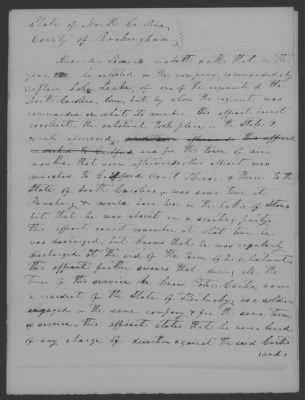 State of North Carolina,
County of Rockingham,
Alexander Lomick maketh oath that in the
year he enlisted in the company commanded by
Captain John Leake, of one of the regiments of the
North Carolina line, but by whom the regiment was
commanded or what its number this affiant cannot
recollect, the enlistment took place in the State &
county aforesaid,
and for the term of nine
months that soon afterwards this affiant was
marched to Guilford Court House & thence to the
State of South Carolina, was some time at
& would have been in the battle of Stono
but that he was absent on a scouting party,
this affiant cannot remember at what time he
was discharged, but knows that he was regularly
discharged at the end of the term of his enlistment,
this affiant further swears that during all the
time of this service he knew Peter Carter, now
a resident of the State of Kentucky, as a soldier
engaged in the same company & for the same term
of service, this affiant states that he never heard
of any charge of desertion against the said Carter
and